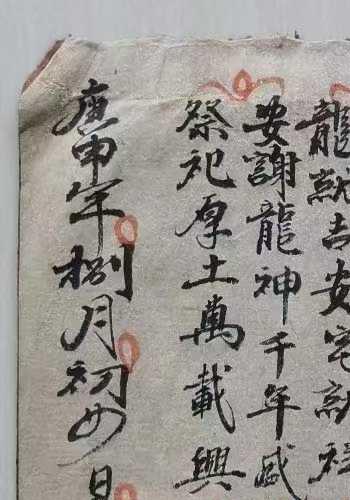 龍就吉安宅就
安謝龍神千年盛
祭祀厚土萬載興
庚申年捌月初四日